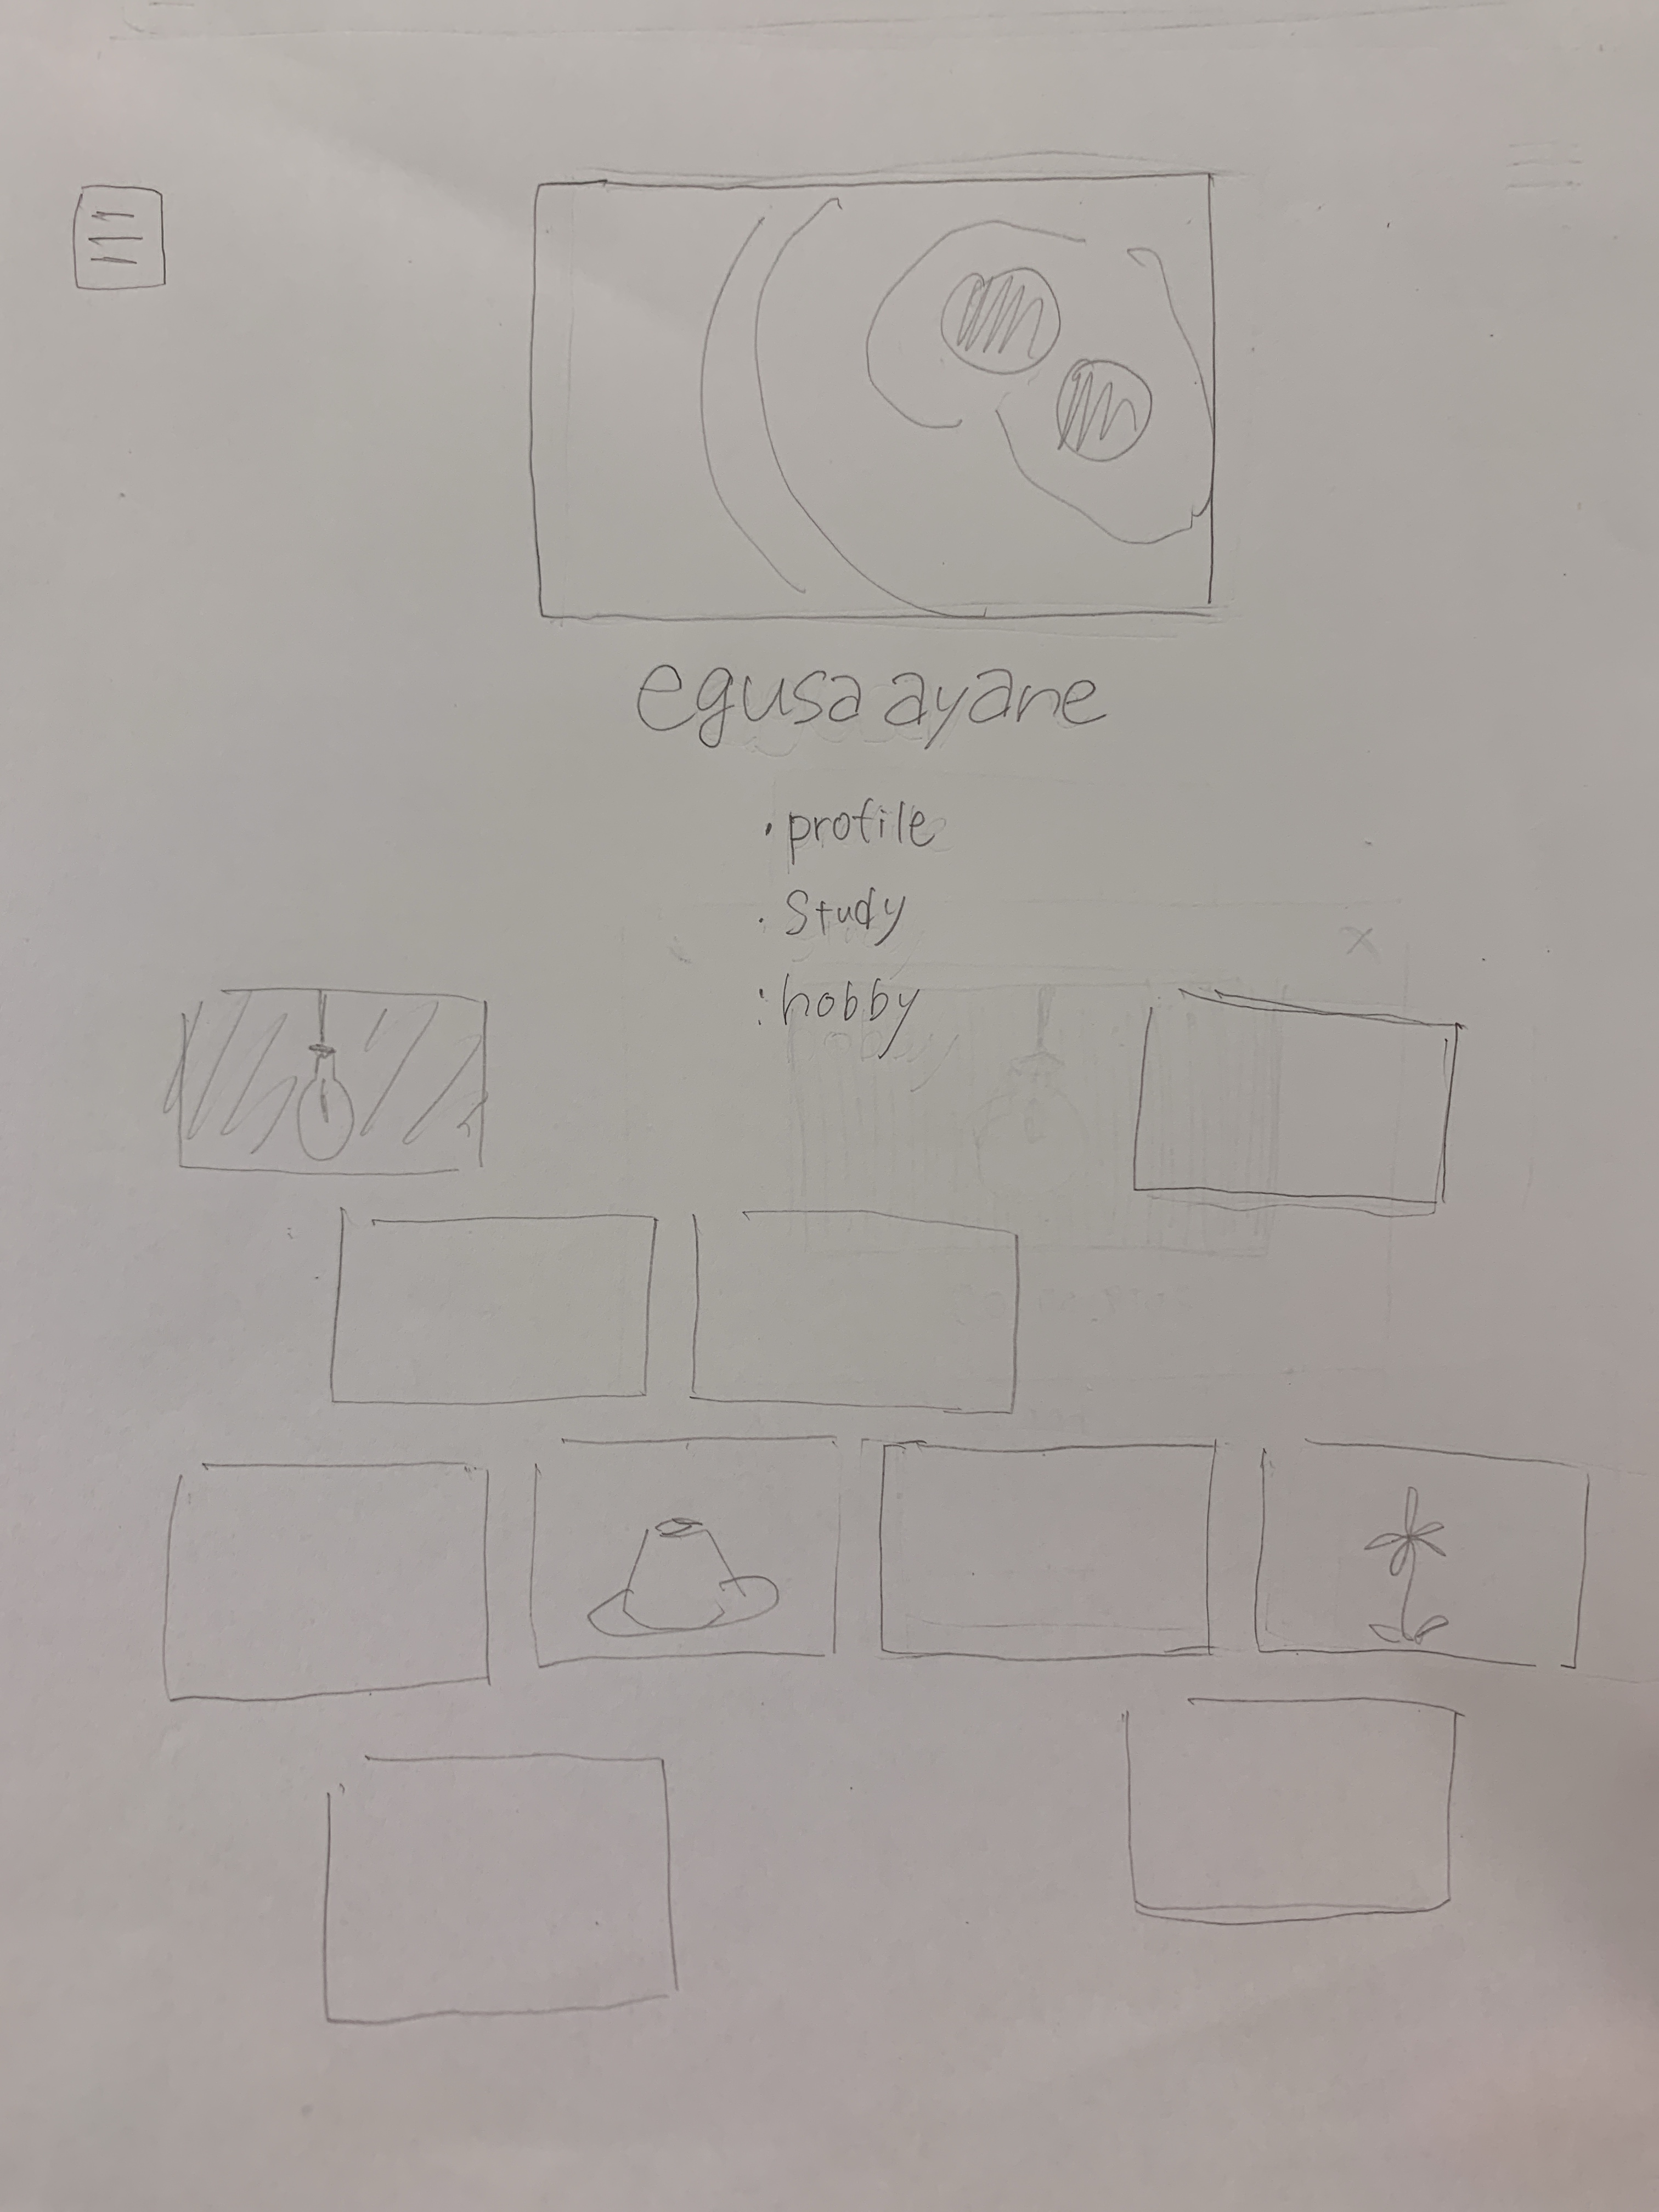 egusa ayane
・profile
・study
・hobby